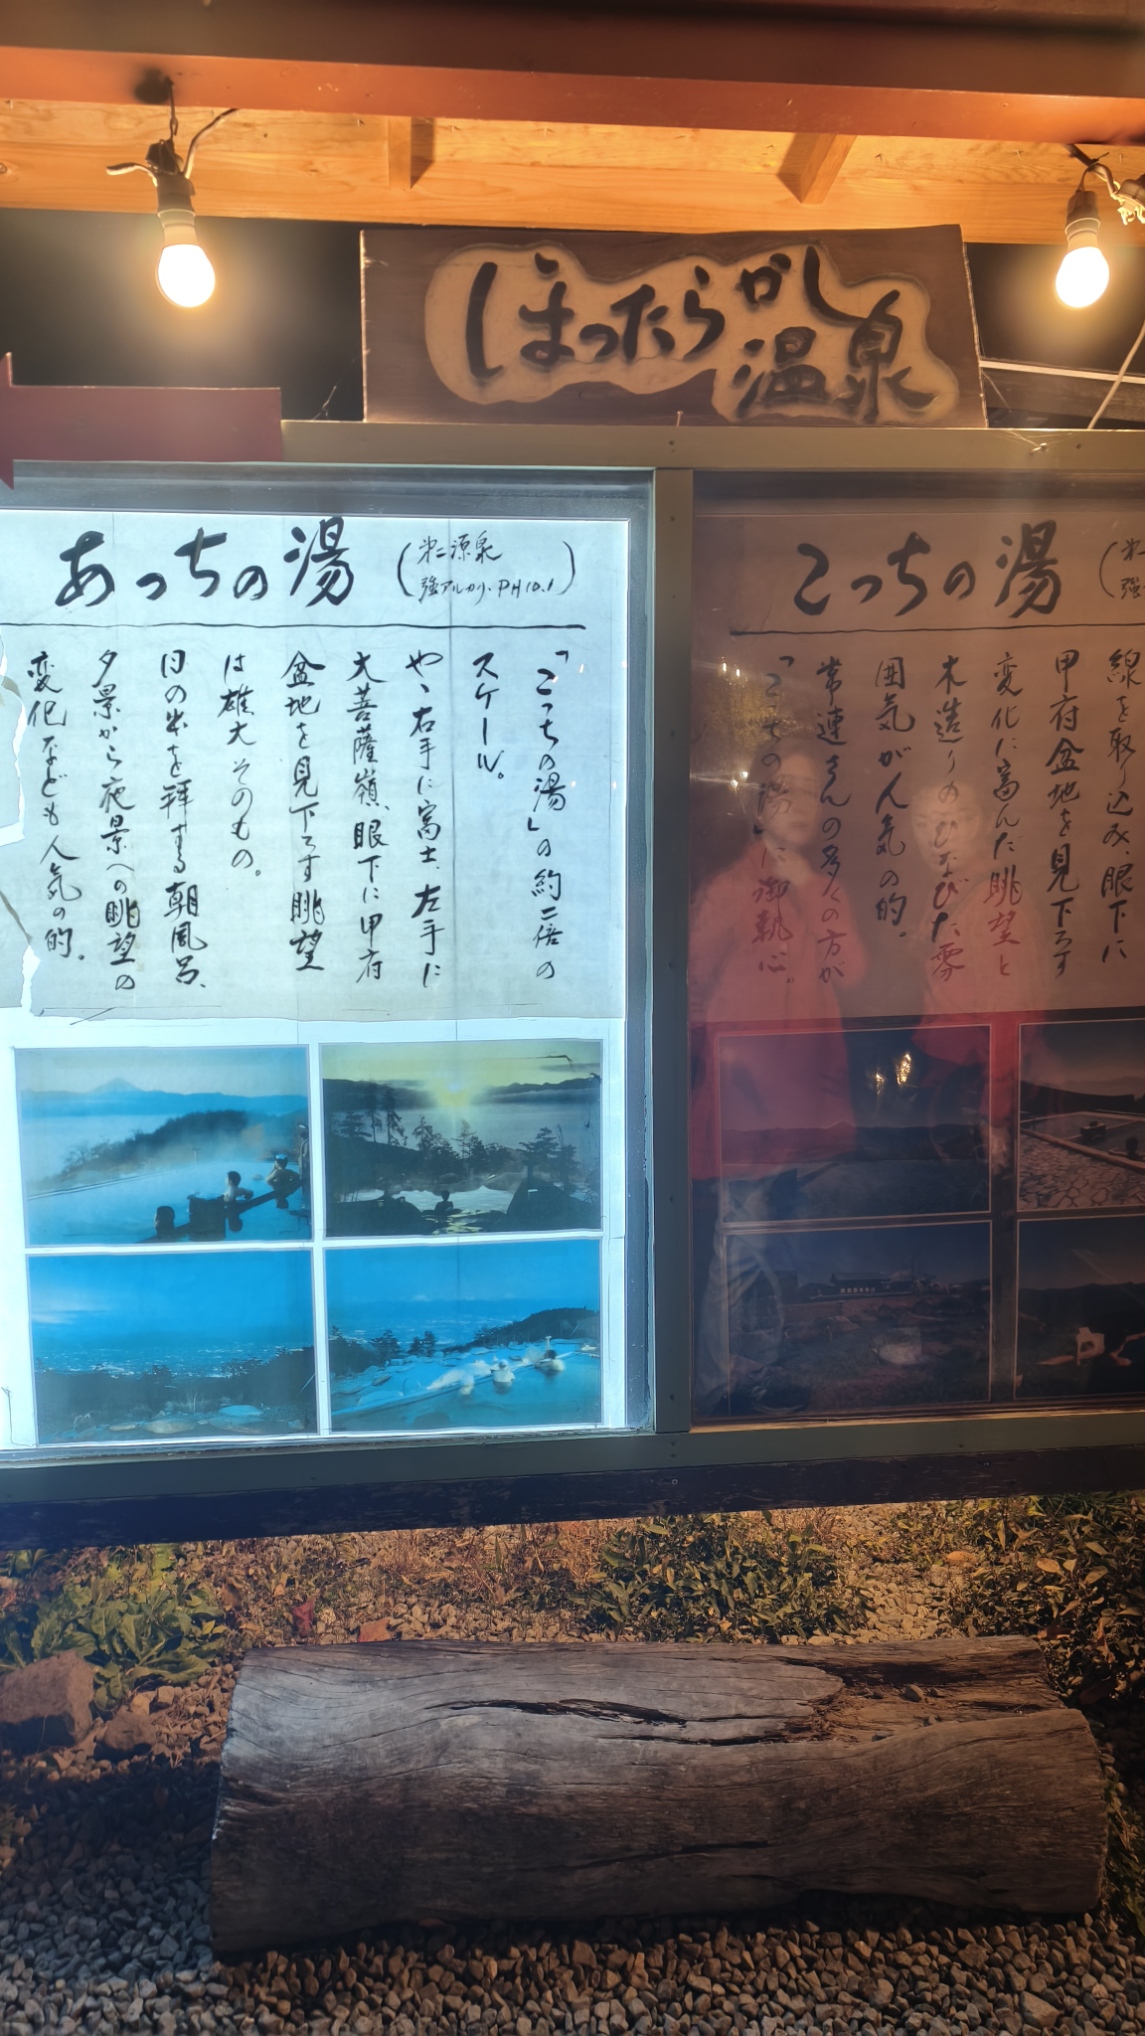 ほったらかし
温泉
あっちの湯
(第二源泉
強アルカリ・PH10.1)
「こっちの湯」の約二倍の
スケール。
やゝ右手に富士、左手に
大菩薩嶺、眼下に甲府
盆地を見下ろす眺望
は雄大そのもの。
日の出を拝する朝風呂、
夕景から夜景への眺望の
変化なども人気の的。
こっちの湯
線を取り込み、眼下に
甲府盆地を見下ろす
変化に富んだ眺望と
木造りのひなびた雰
囲気が人気の的。
常連さんの多くの方が
「こっちの湯」に御執心。